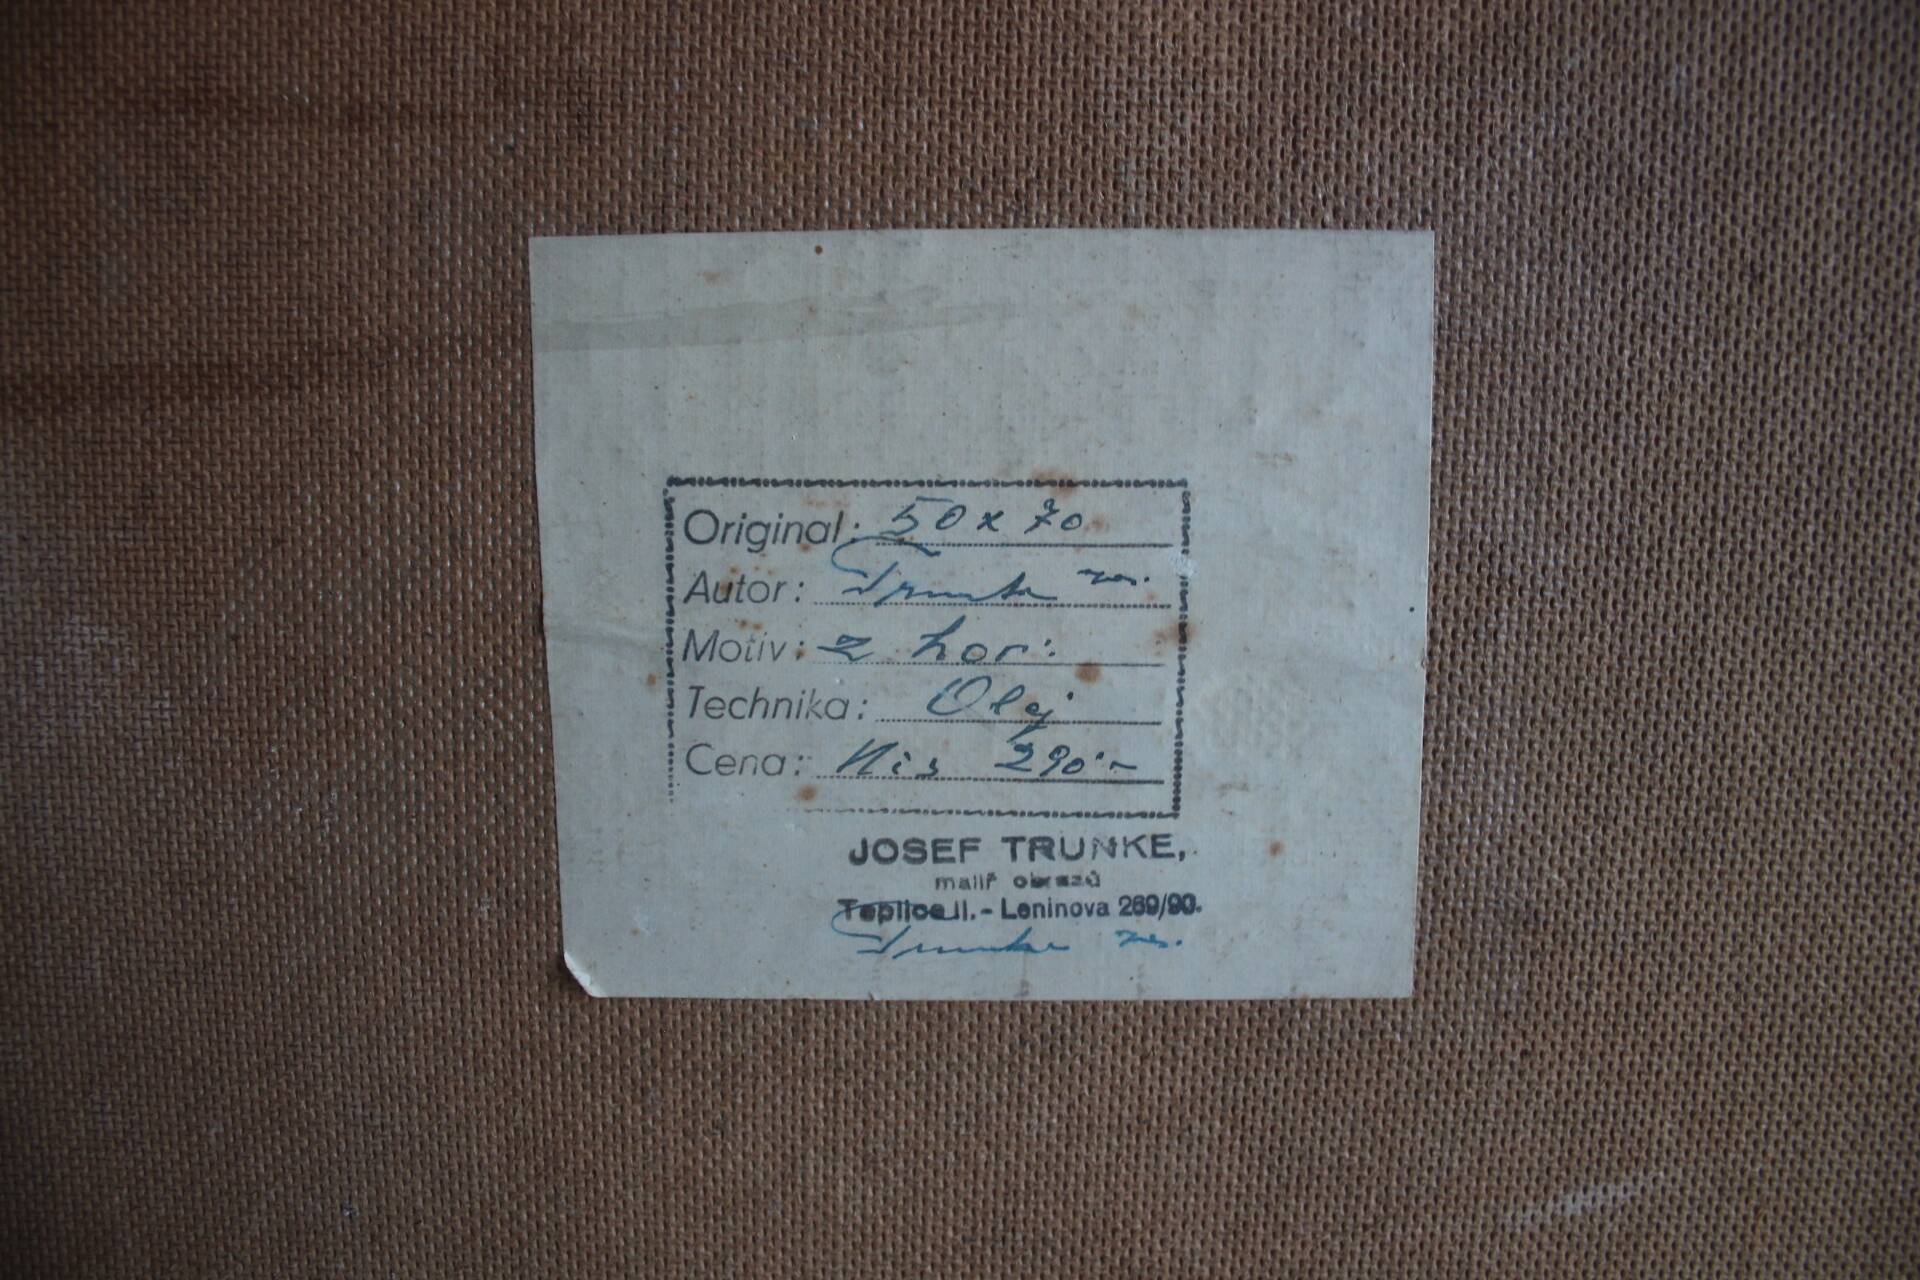 Original: 50 x 70
Autor: Trunke
Motiv: z hor:
Technika: Olej
Cena: Kčs 290·-
JOSEF TRUNKE,
malíř obrazů
Teplice II. - Leninova 269/90.
Trunke